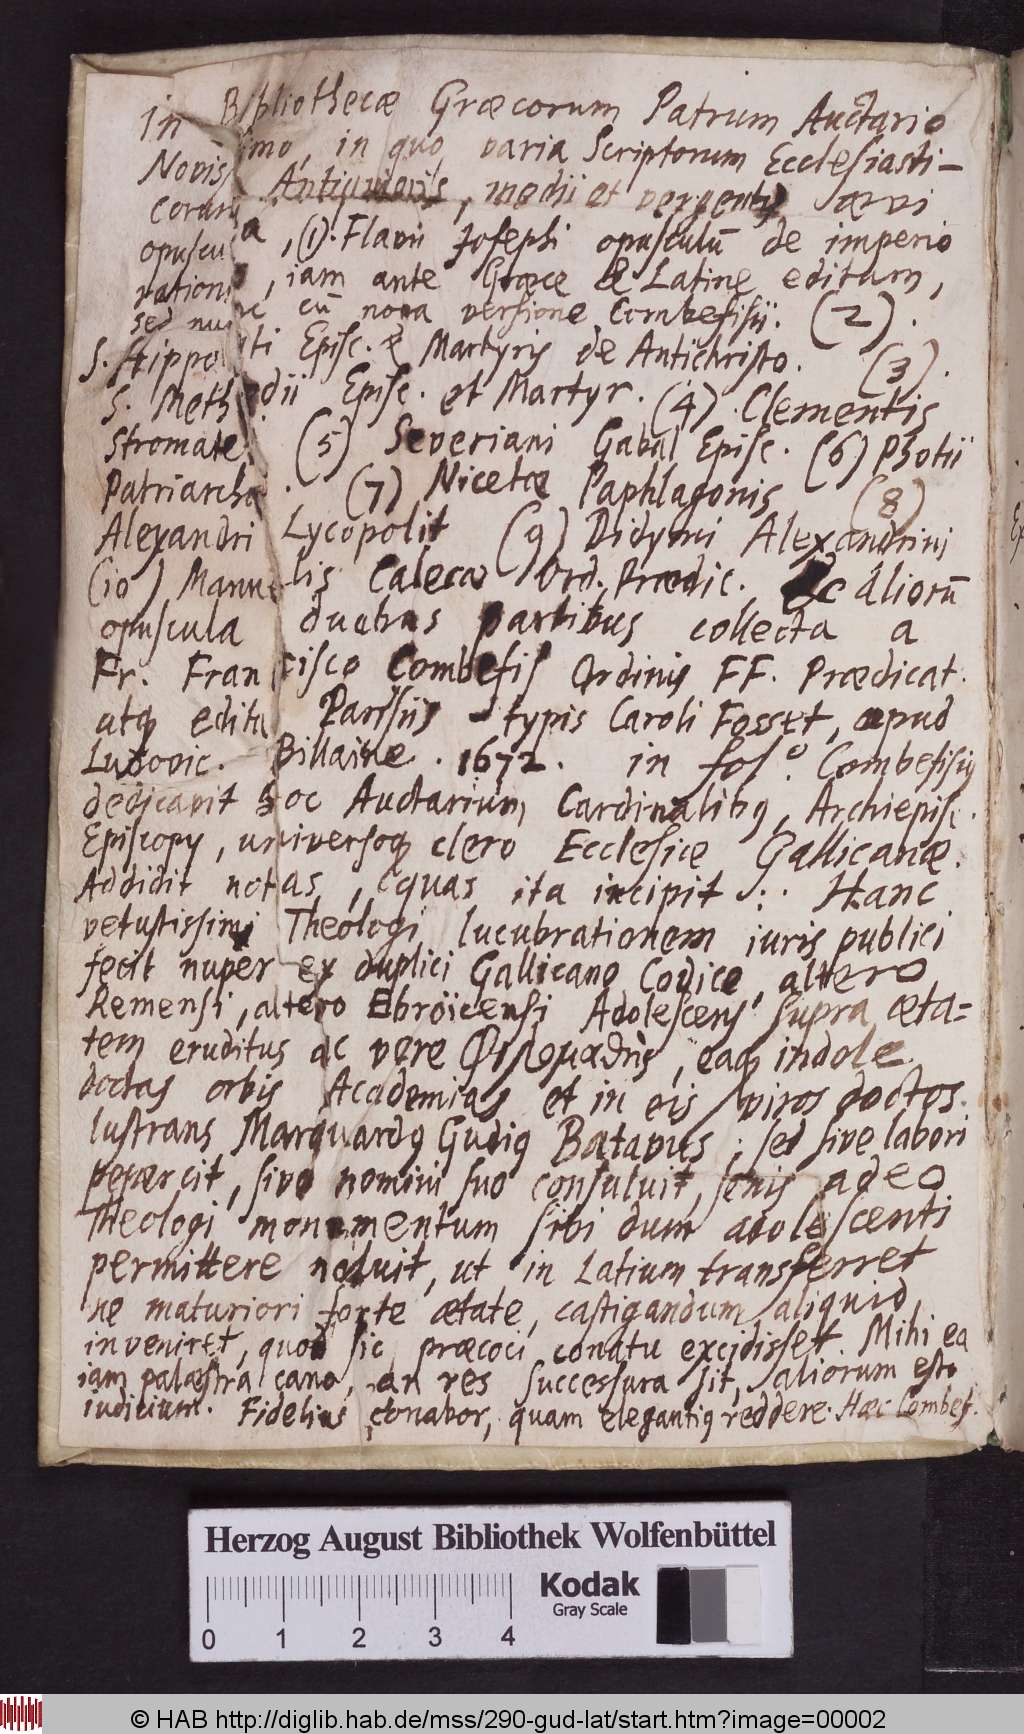 In Bibliothecæ Græcorum Patrum Auctario
Noviss imo, in quo varia Scriptorum Ecclesiasti-
corum Antiquioris, medii et vergentis ævi
opuscula, (1). Flavii Josephi opusculū de imperio
rationis, iam ante Græce & Latine editum,
sed nunc cū nova versione Combefisii. (2).
S. Hippolyti Episc. & Martyris de Antichristo. (3).
S. Methodii Episc. et Martyr. (4). Clementis
Stromate. (5) Severiani Gabal Episc. (6) Photii
Patriarchæ. (7) Nicetæ Paphlagonis (8)
Alexandri Lycopolit (9) Didymi Alexandrini
(10) Manuelis Calecæ Ord. Prædic. &c aliorū
opuscula duabus partibus collecta a
Fr. Francisco Combefis Ordinis FF. Prædicat.
atq edita Parisiis typis Caroli Fosset, apud
Ludovic. Billaine. 1672. in folº. Combefisis
dedicavit hoc Auctarium Cardinalibq, Archiepisc.
Episcopy, universoq clero Ecclesiæ Gallicanæ.
Addidit notas, quas ita incipit: Hanc
vetustissimi Theologi lucubrationem iuris publici
fecit nuper ex duplici Gallicano Codice, altero
Remensi, altero Ebroicensi Adolescens supra æta=
tem eruditus ac vere Φιλομαθὴς, eaq indole
doctas orbis Academias et in eis viros doctos
lustrans Marquardq Gudiq Batavus; sed sive labori
pepercit, sive nomini suo consuluit, senis adeo
Theologi monumentum sibi dum adolescenti
permittere noluit, ut in Latium transferret
ne maturiori forte ætate, castigandum aliquid
inveniret, quod sic præcoci conatu excidisset. Mihi ea
iam palæstra cano, an res successura sit, aliorum esto
iudicium. Fidelius conabor, quam elegantiq reddere. Hæc Combef.
Herzog August Bibliothek Wolfenbüttel
0 1 2 3 4
Kodak
Gray Scale
© HAB http://diglib.hab.de/mss/290-gud-lat/start.htm?image=00002